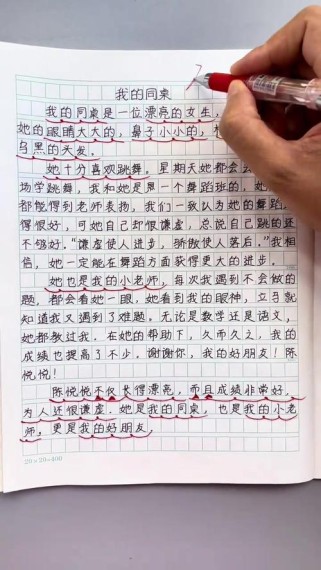 我的同桌
我的同桌是一位漂亮的女生，
她的眼睛大大的，鼻子小小的，
乌黑的头发。
她十分喜欢跳舞。星期天她都会去
场学跳舞，我和她是同一个舞蹈班的。她
都能得到老师表扬，我们一致认为她的舞蹈
得很好，可她自己却很谦虚，总说自己跳的还
不够好。“谦虚使人进步，骄傲使人落后。”我相
信，她一定能在舞蹈方面获得更大的进步。
她也是我的小老师，每次我遇到不会做的
题，都会看她一眼，她看到我的眼神，立马就
知道我又遇到了难题。无论是数学还是语文，
她都教过我。在她的帮助下，久而久之，我的
成绩也提高了不少。谢谢你，我的好朋友！陈
悦悦！
陈悦悦不仅长得漂亮，而且成绩非常好，
为人还很谦虚。她是我的同桌，也是我的小老
师，更是我的好朋友。
20×20=400